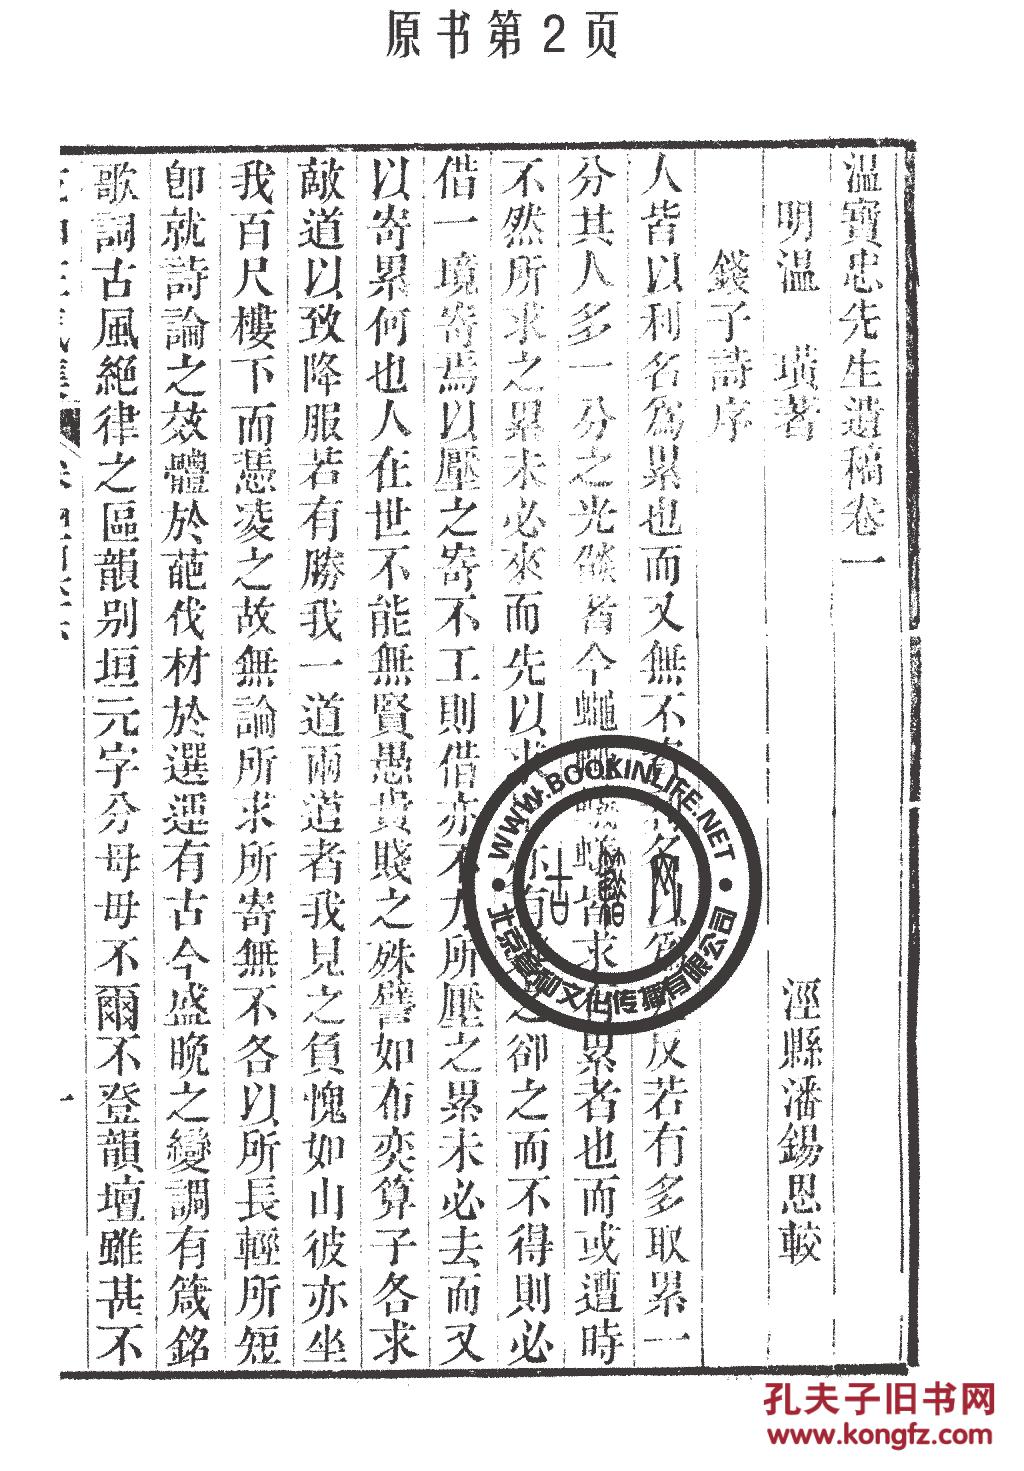 原书第2页
溫寶忠先生遺稿卷一
明溫 璜著 涇縣潘錫恩較
錢子詩序
人皆以利名為累也而又無不名以反若有多取累一
分其人多一分之光燄皆今蠅皆求累者也而或遭時
不然所求之累未必來而先以求之卻之而不得則必
借一境寄焉以壓之寄不工則借亦不大所壓之累未必去而又
以寄累何也人在世不能無賢愚貴賤之殊譬如布奕算子各求
敵道以致降服若有勝我一道兩道者我見之負愧如山彼亦坐
我百尺樓下而憑凌之故無論所求所寄無不各以所長輕所短
卽就詩論之效體於葩伐材於選運有古今盛晚之變調有箴銘
歌詞古風絕律之區韻別垣元字分母母不爾不登韻壇雖甚不
一
WWW.BOOKINLIFE.NET
北京書和文化传播有限公司
孔夫子旧书网
www.kongfz.com